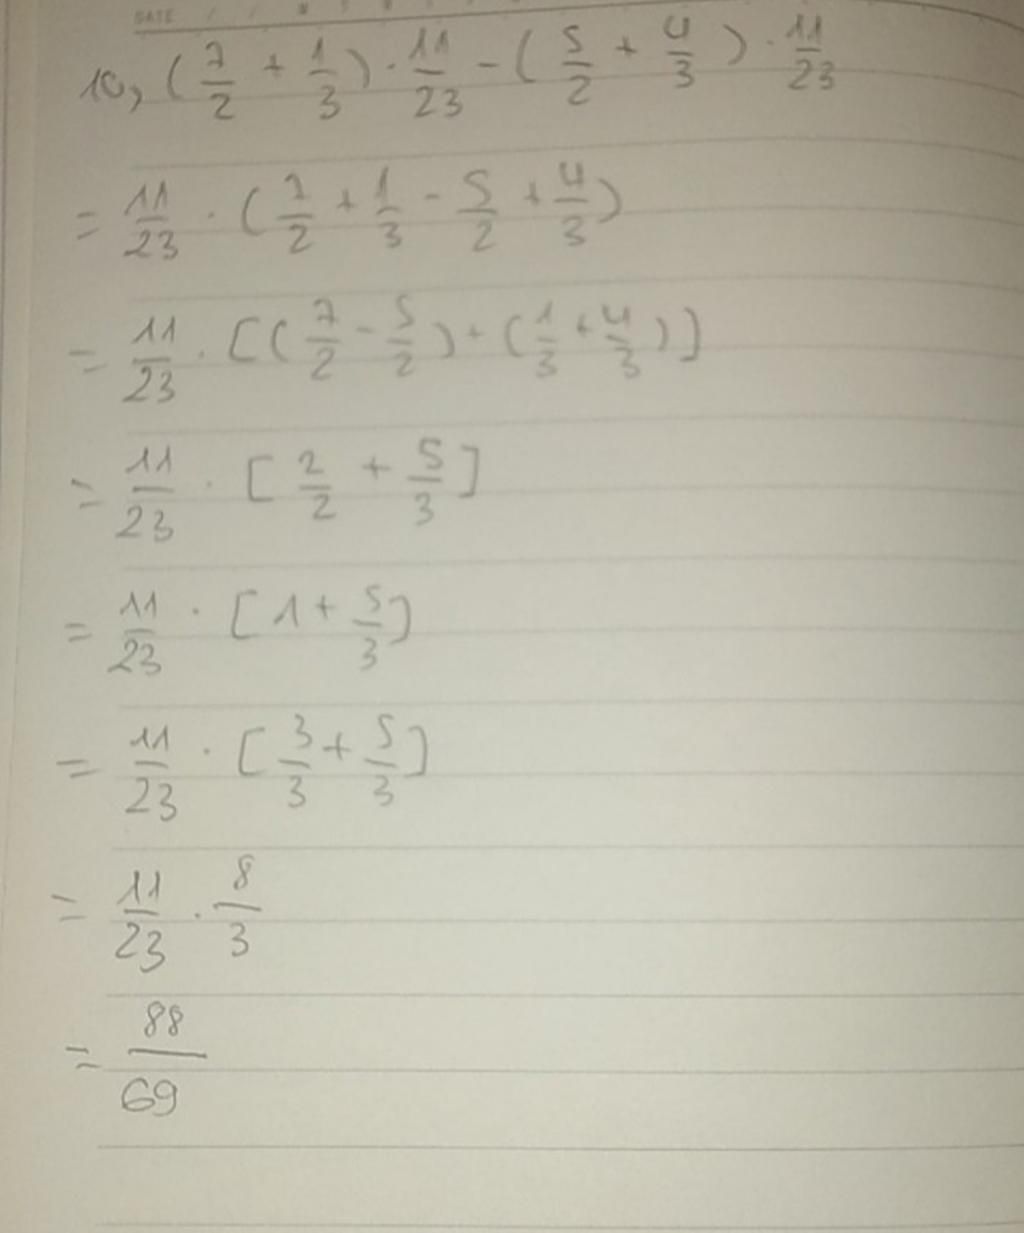 DATE
10, (7/2 + 1/3) · 11/23 - (5/2 + 4/3) · 11/23
= 11/23 · (7/2 + 1/3 - 5/2 + 4/3)
= 11/23 · [(7/2 - 5/2) + (1/3 + 4/3)]
= 11/23 · [2/2 + 5/3]
= 11/23 · [1 + 5/3]
= 11/23 · [3/3 + 5/3]
= 11/23 · 8/3
= 88/69